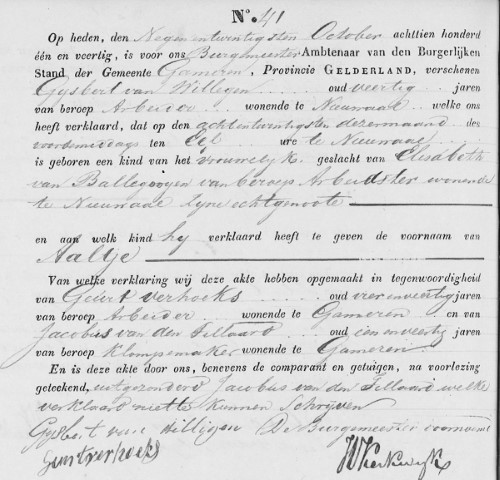 No. 41
Op heden, den Negenentwintigsten October achttien honderd
één en veertig, is voor ons Burgemeester Ambtenaar van den Burgerlijken
Stand der Gemeente Gameren, Provincie GELDERLAND, verschenen
Gysbert van Willigen oud veertig jaren
van beroep Arbeider wonende te Nieuwaal welke ons
heeft verklaard, dat op den achtentwintigsten dezer maand des
voordemiddags ten Elf ure te Nieuwaal
is geboren een kind van het vrouwelyk geslacht van Elisabeth
van Ballegooyen van beroep Arbeidster wonende
te Nieuwaal zyne echtgenoote
en aan welk kind hy verklaard heeft te geven de voornaam van
Aaltje
Van welke verklaring wij deze akte hebben opgemaakt in tegenwoordigheid
van Geurt Verhoeks oud vierenveertig jaren
van beroep Arbeider wonende te Gameren en van
Jacobus van den Tillaard oud eenenveertig jaren
van beroep Klompemaker wonende te Gameren
En is deze akte door ons, benevens de comparant en getuigen, na voorlezing
geteekend, uitgezonderd Jacobus van den Tillaard welke
verklaard niet te kunnen Schryven
Gysbert van Willigen De Burgemeester voornoemd
Geurt verhoeks